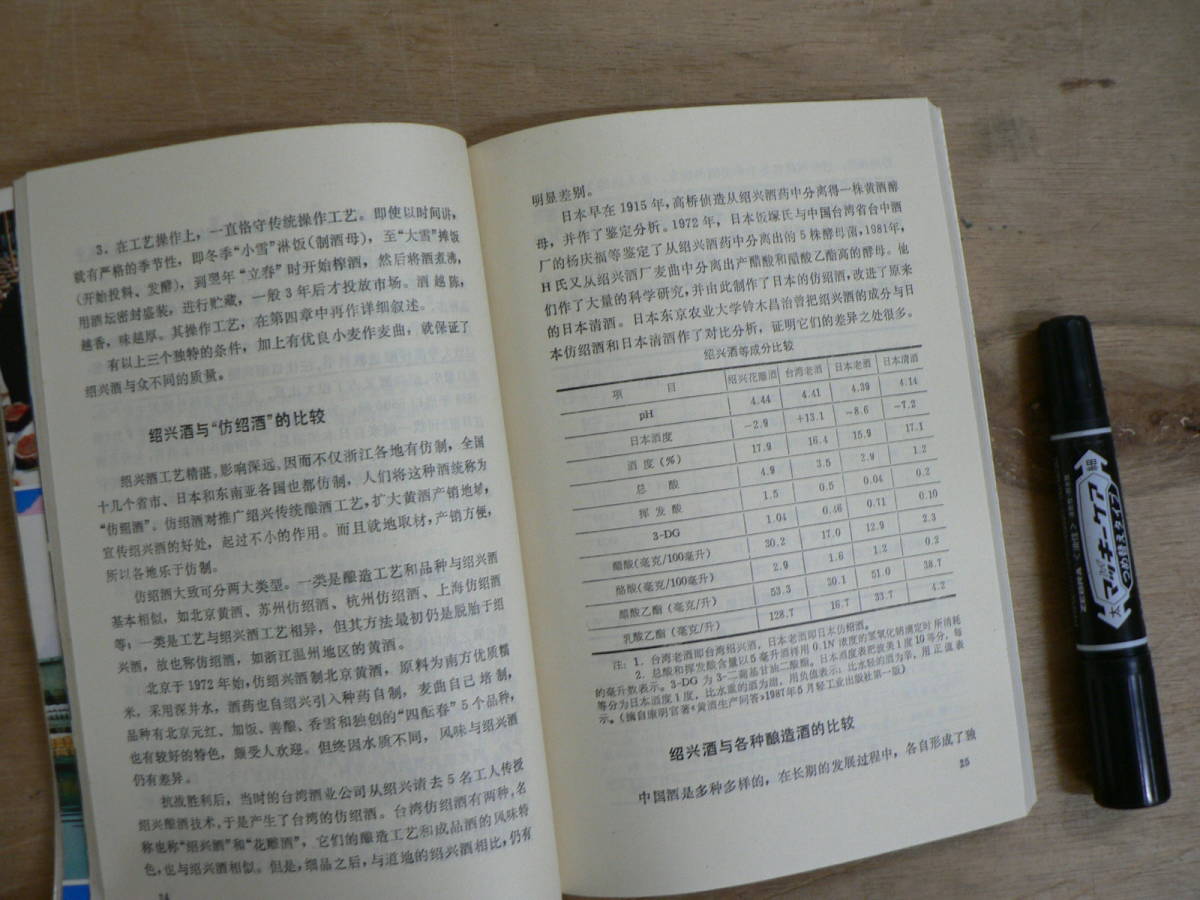 3．在工艺操作上，一直恪守传统操作工艺。即使以时间讲，
就有严格的季节性，即冬季“小雪”淋饭(制酒母)，至“大雪”摊饭
(开始投料、发酵)，到翌年“立春”时开始榨酒，然后将酒煮沸，
用酒坛密封盛装，进行贮藏，一般3年后才投放市场。酒越陈，
越香，味越厚。其操作工艺，在第四章中再作详细叙述。
有以上三个独特的条件，加上有优良小麦作麦曲，就保证了
绍兴酒与众不同的质量。
绍兴酒与“仿绍酒”的比较
绍兴酒工艺精湛，影响深远。因而不仅浙江各地有仿制，全国
十几个省市、日本和东南亚各国也都仿制，人们将这种酒统称为
“仿绍酒”。仿绍酒对推广绍兴传统酿酒工艺，扩大黄酒产销地域，
宣传绍兴酒的好处，起过不小的作用。而且就地取材，产销方便，
所以各地乐于仿制。
仿绍酒大致可分两大类型。一类是酿造工艺和品种与绍兴酒
基本相似，如北京黄酒、苏州仿绍酒、杭州仿绍酒、上海仿绍酒
等；一类是工艺与绍兴酒工艺相异，但其方法最初仍是脱胎于绍
兴酒，故也称仿绍酒，如浙江温州地区的黄酒。
北京于1972年始，仿绍兴酒制北京黄酒，原料为南方优质糯
米，采用深井水，酒药也自绍兴引入种药自制，麦曲自己培制，
品种有北京元红、加饭、善酿、香雪和独创的“四酝春”5个品种，
也有较好的特色，颇受人欢迎。但终因水质不同，风味与绍兴酒
仍有差异。
抗战胜利后，当时的台湾酒业公司从绍兴请去5名工人传授
绍兴酿酒技术，于是产生了台湾的仿绍酒。台湾仿绍酒有两种，名
称也称“绍兴酒”和“花雕酒”，它们的酿造工艺和成品酒的风味特
色，也与绍兴酒相似。但是，细品之后，与道地的绍兴酒相比，仍有
24
明显差别。
日本早在1915年，高桥侦造从绍兴酒药中分离得一株黄酒酵
母，并作了鉴定分析。1972年，日本饭塚氏与中国台湾省台中酒
厂的杨庆福等鉴定了从绍兴酒药中分离出的5株酵母菌，1981年，
H氏又从绍兴酒厂麦曲中分离出产醋酸和醋酸乙酯高的酵母。他
们作了大量的科学研究，并由此制作了日本的仿绍酒，改进了原来
的日本清酒。日本东京农业大学铃木昌治曾把绍兴酒的成分与日
本仿绍酒和日本清酒作了对比分析，证明它们的差异之处很多。
绍兴酒等成分比较
项 目 绍兴花雕酒 台湾老酒 日本老酒 日本清酒
pH 4.44 4.41 4.39 4.14
日本酒度 −2.9 +13.1 −8.6 −7.2
酒度(%) 17.9 16.4 15.9 17.1
总 酸 4.9 3.5 2.9 1.2
挥发酸 1.5 0.5 0.04 0.2
3-DG 1.04 0.46 0.71 0.10
醋酸(毫克/100毫升) 30.2 17.0 12.9 2.3
酪酸(毫克/100毫升) 2.9 1.6 1.2 0.2
醋酸乙酯(毫克/升) 53.3 30.1 51.0 38.7
乳酸乙酯(毫克/升) 128.7 16.7 33.7 4.2
注：1．台湾老酒即台湾绍兴酒，日本老酒即日本仿绍酒。
2．总酸和挥发酸含量以5毫升酒样用0.1N浓度的氢氧化钠滴定时所消耗
的毫升数表示。3-DG为3-二羟基甘油二酸酯。日本酒度表把波美1度10等分，每
等分为日本酒度1度，比水重的酒为甜，用负值表示；比水轻的酒为辛，用正值表
示。(摘自康明官著《黄酒生产问答》1987年5月轻工业出版社第一版)
绍兴酒与各种酿造酒的比较
中国酒是多种多样的，在长期的发展过程中，各自形成了独
25
太
マッキーケア
細
つめ替えタイプ
ZEBRA